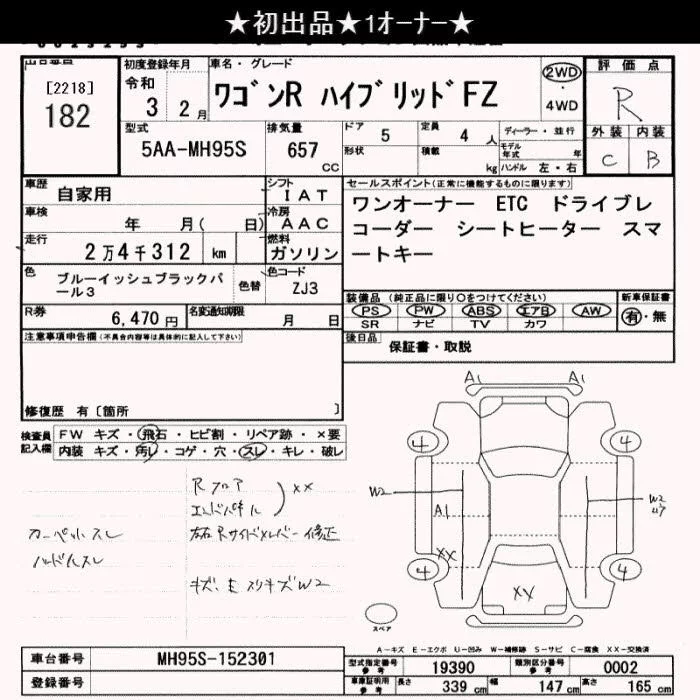 ★初出品★1ｵｰﾅｰ★
出品番号
[2218]
182
初度登録年月
令和
3年 2月
車名・グレード
ワゴンR ハイブリッドFZ
2WD
・
4WD
評価点
R
外装 内装
C B
型式
5AA-MH95S
排気量
657
CC
ドア 5
形状
定員 4 人
積載 kg
ディーラー・並行
モデル年式 年
ハンドル 左・右
車歴
自家用
シフト
IAT
車検
年 月( 日)
冷房
AAC
走行
2万4千312 km
燃料
ガソリン
色
ブルーイッシュブラックパール3
色替
色コード
ZJ3
R券
6,470円
名変通知期限
月 日
セールスポイント(正常に機能するものに限ります)
ワンオーナー ETC ドライブレ
コーダー シートヒーター スマ
ートキー
装備品 (純正品に限り○をつけてください)
PS PW ABS エアB AW
SR ナビ TV カワ
新車保証書
有・無
後日品
保証書・取説
注意事項申告欄(不具合内容等は具体的に記入して下さい)
修復歴 有〔箇所 〕
検査員記入欄
FW キズ・飛石・ヒビ割・リペア跡・×要
内装 キズ・汚レ・コゲ・穴・スレ・キレ・破レ
Rフロア
エンドパネル
XX
左右Rサイドメンバー修正
カーペットスレ
ハンドルスレ
キズ、E スリキズ W2
A1 A1
4 4
W2
A1
XX
W2
4 4
XX
スペア
A-キズ E-エクボ U-凹み W-補修跡 S-サビ C-腐食 XX-交換済
車台番号
MH95S-152301
登録番号
型式指定番号
参考
19390
類別区分番号
参考
0002
車庫証明用
参考
長さ 339 cm
幅 147 cm
高さ 165 cm